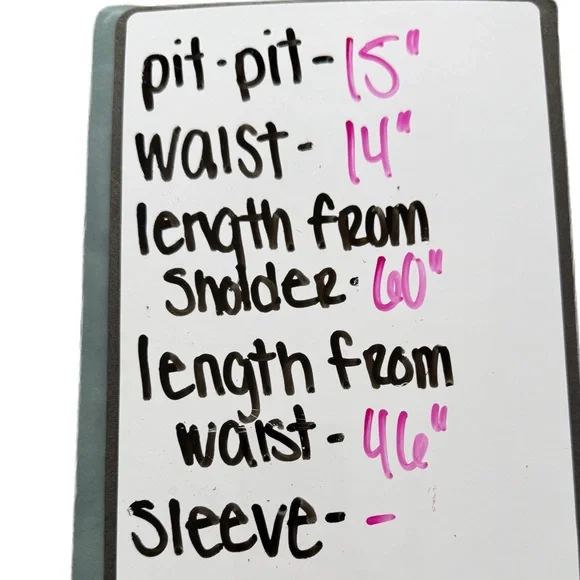 pit-pit-15"
waist-14"
length from
sholder-60"
length from
waist-46"
sleeve--